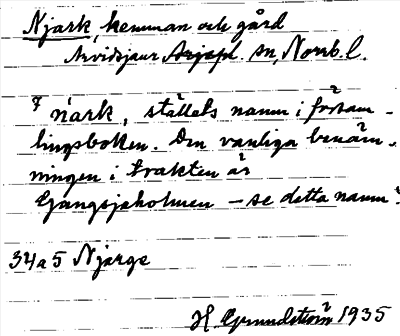 Njark, hemman och gård
Arvidsjaur sn, Norrb. l.
njark, ställets namn i församlingsboken. Den vanliga benämningen i trakten är
Gangsjaholmen – se detta namn!
34a5 Njarge
H. Grundström 1935